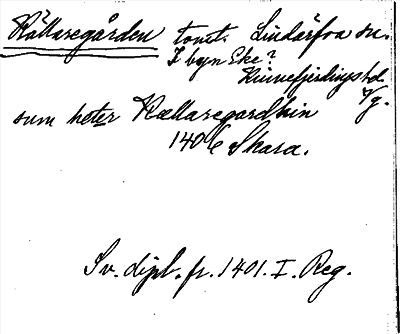 Källaregården tomt. Lindärfva sn.
I byn Eke?
Kinnefjerdings hd.
Vg.
sum heter Kællaregardhin
1406 Skara.
Sv. dipl. fr. 1401. I. Reg.